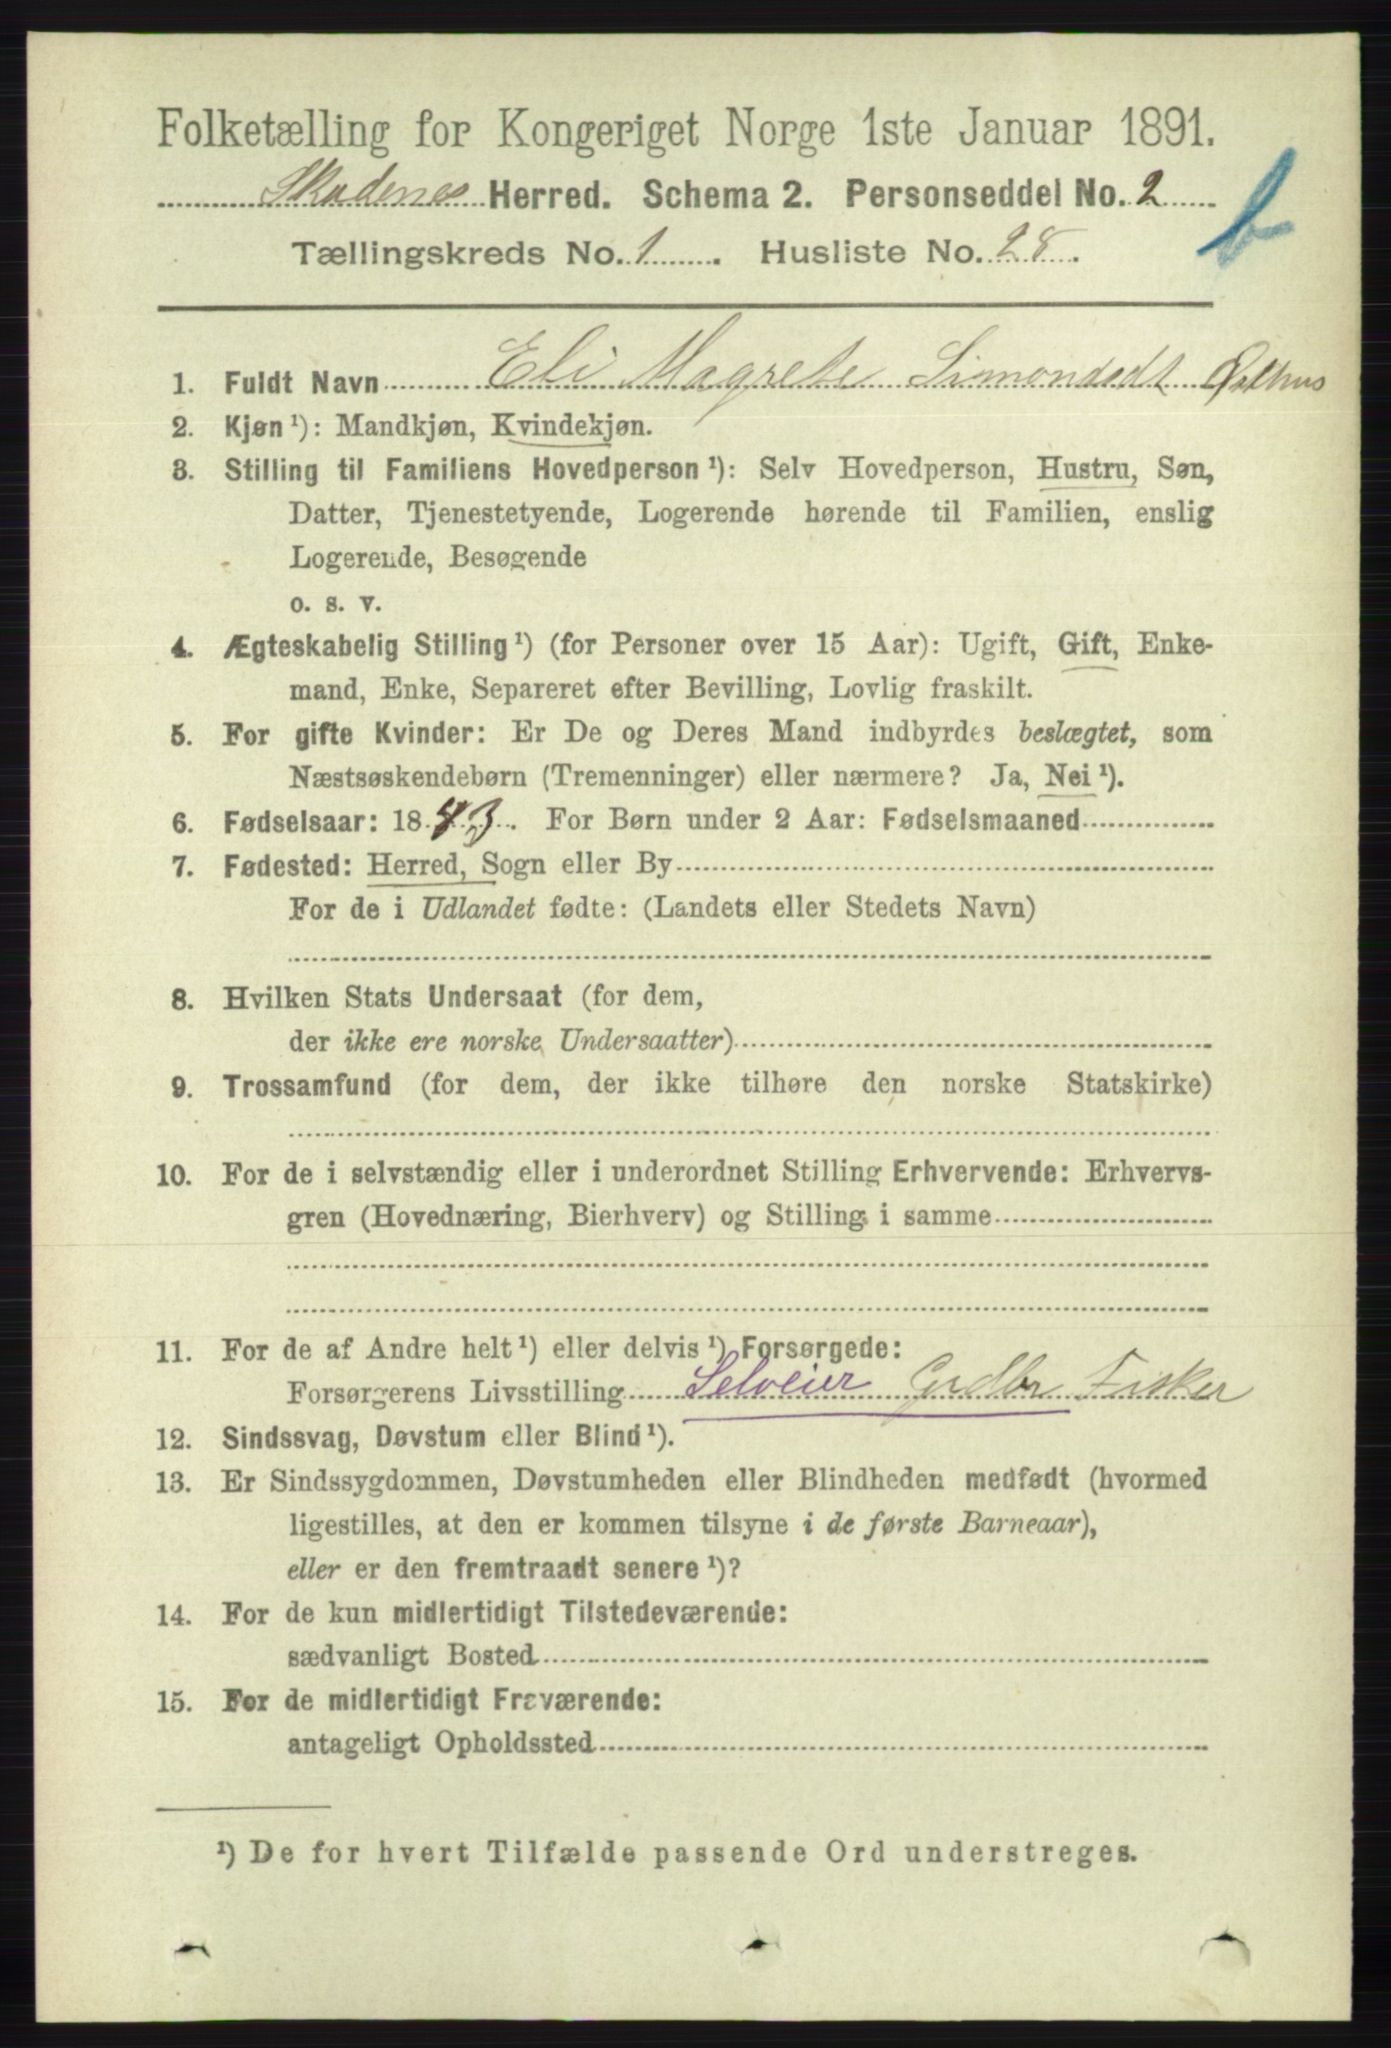 Folketælling for Kongeriget Norge 1ste Januar 1891.
Skudenes Herred. Schema 2. Personseddel No. 2
b
Tællingskreds No. 1. Husliste No. 28.
1. Fuldt Navn Eli Magrete Simondsdt
2. Kjøn ¹): Mandkjøn, Kvindekjøn.
3. Stilling til Familiens Hovedperson ¹): Selv Hovedperson, Hustru, Søn,
Datter, Tjenestetyende, Logerende hørende til Familien, enslig
Logerende, Besøgende
o. s. v.
4. Ægteskabelig Stilling ¹) (for Personer over 15 Aar): Ugift, Gift, Enke-
mand, Enke, Separeret efter Bevilling, Lovlig fraskilt.
5. For gifte Kvinder: Er De og Deres Mand indbyrdes beslægtet, som
Næstsøskendebørn (Tremenninger) eller nærmere? Ja, Nei ¹).
6. Fødselsaar: 1843. For Børn under 2 Aar: Fødselsmaaned
7. Fødested: Herred, Sogn eller By
For de i Udlandet fødte: (Landets eller Stedets Navn)
8. Hvilken Stats Undersaat (for dem,
der ikke ere norske Undersaatter)
9. Trossamfund (for dem, der ikke tilhøre den norske Statskirke)
10. For de i selvstændig eller i underordnet Stilling Erhvervende: Erhvervs-
gren (Hovednæring, Bierhverv) og Stilling i samme
11. For de af Andre helt ¹) eller delvis ¹) Forsørgede:
Forsørgerens Livsstilling Selveier Grdbr Fisker
12. Sindssvag, Døvstum eller Blind ¹).
13. Er Sindssygdommen, Døvstumheden eller Blindheden medfødt (hvormed
ligestilles, at den er kommen tilsyne i de første Barneaar),
eller er den fremtraadt senere ¹)?
14. For de kun midlertidigt Tilstedeværende:
sædvanligt Bosted
15. For de midlertidigt Fraværende:
antageligt Opholdssted
¹) De for hvert Tilfælde passende Ord understreges.